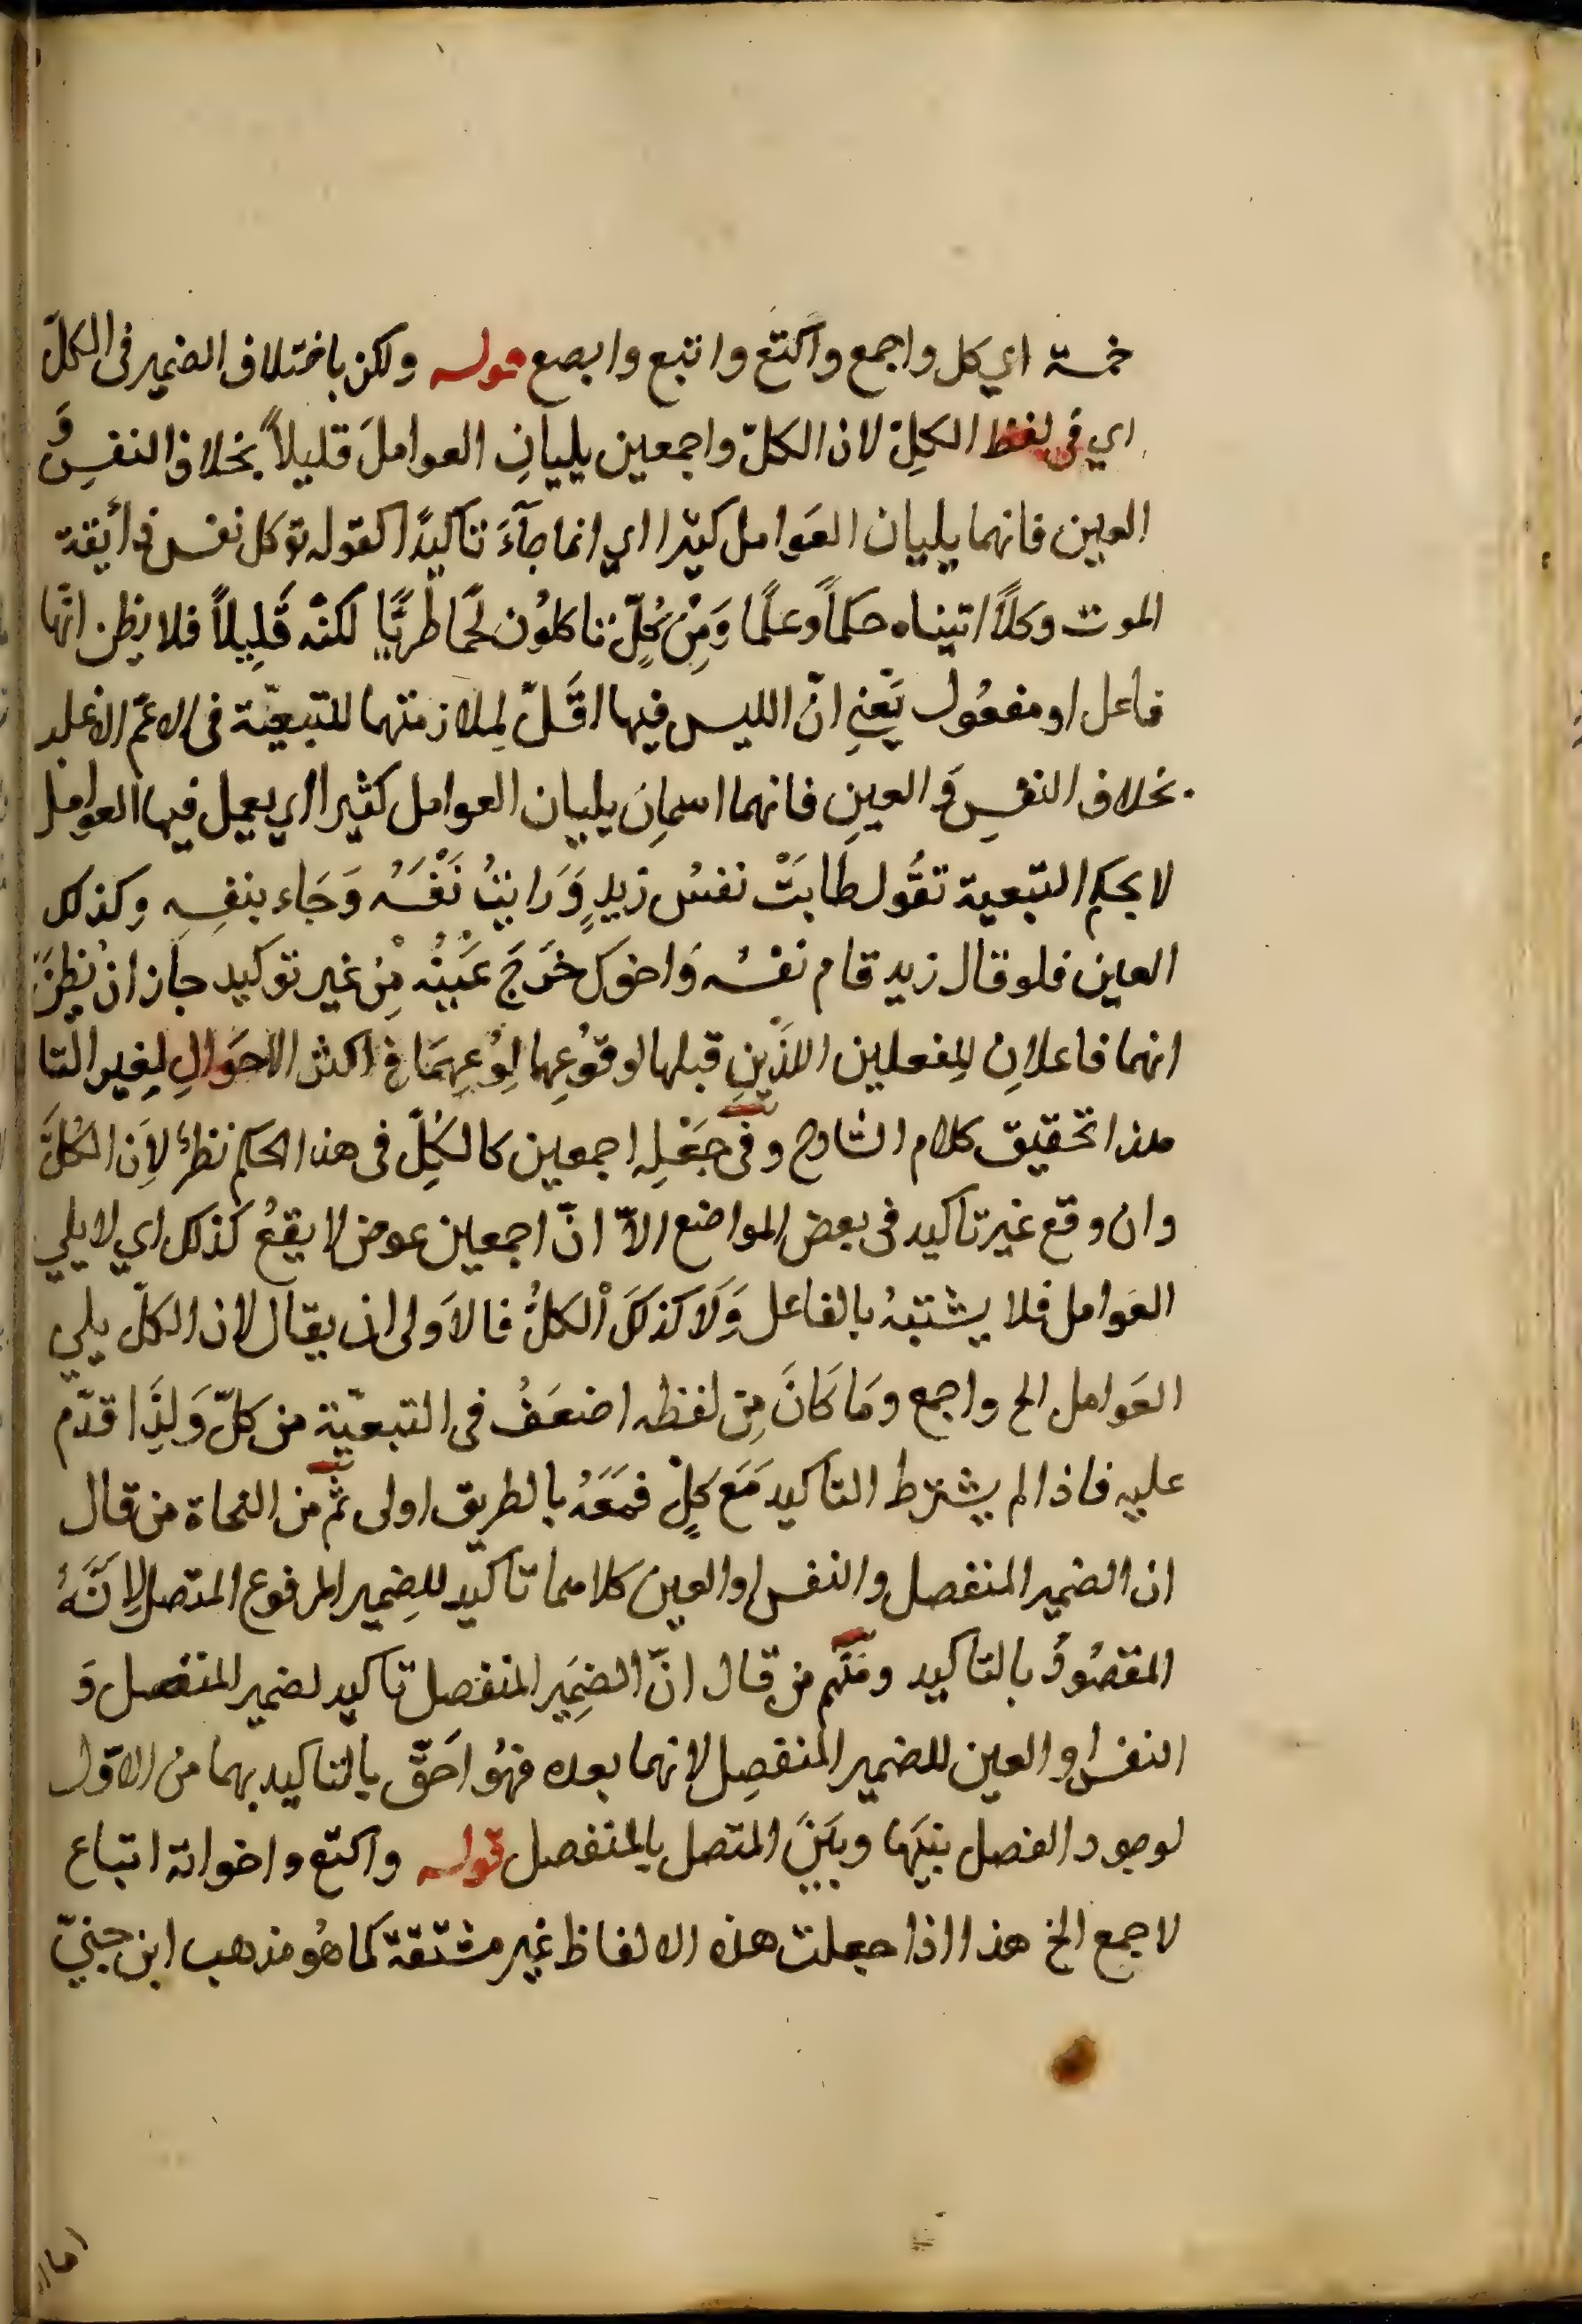 خمسة اي كل واجمع واكتع واتبع وابصع قوله ولكن باختلاف الضمير فى الكلّ
اي فى لفظ الكلِّ لان الكلّ واجمعين يليانِ العواملَ قليلاً بخلاف النفسِ وَ
العين فانهما يليان العَوامل كثيرا اي انما جآءَ تأكيدًا كقوله تو كل نفس ذائقة
الموت وكلاًّ اتيناه حكماً وعلمًا وَمِنْ كُلٍّ تاكلوُن لحمًا طريًّا لكنّه قَلِيلاً فلا يظن انّها
فاعل او مفعُول يَعْنِي انّ اللبس فيها اقَلّ لملازمتهما للتبعيّة فى الاعمّ الاغلب
بخلاف النفسِ وَ العينِ فانهما اسمانِ يليان العوامل كثيرا اي يعمل فيها العوامل
لا بحكم التبعية تقُول طابَتْ نفسُ زيدٍ وَ رايتُ نَفْسَهُ وَجَاء بنفسِهِ وكذلك
العين فلو قال زيد قام نفسُه وَاخوك خرَجَ عَيْنُه مِنْ غير توكيد جاز انْ يُظَنَّ
انهما فاعلانِ للِفعلين اللذَيْنِ قبلها لوقوُعِهما لِوُعِهِمَا فى اكثر الاحوَالِ لِغير التا
هذا تحقيق كلام الشارح وفى جَعْلِه اجمعين كالكلِّ فى هذا الحكم نظرٌ لاَِن الكُلَّ
وان وقع غير تاكيد فى بعض المواضع الاّ انّ اجمعين عوض لا يقعُ كذلك اي لا يلي
العَوامل فلا يشتبهُ بالفاعل وَلاَ كذلكَ الكلُّ فالاَولى ان يقال لان الكلّ يلي
العَوامل الخ واجمع ومَا كَانَ مِن لفظه اضعَفُ فى التبعيّة من كلّ وَلِذَا قدّم
عليه فاذا لم يشترط التاكيد مَعَ كلٍّ فمَعَهُ بالطريق اولى ثمّ من النحاة من قال
ان الضمير المنفصل والنفس او العين كلاهما تاكيد للِضمير المرفوع المتصل لاِنَّهُ
المقصُودُ بالتاكيد ومنهم من قال انّ الضمِير المنفصل تاكيد لضمير المنفصل وَ
النفس او العين للضمير المنفصِل لانهما بعده فهوُ احَقّ بالتاكيد بهما من الاوّل
لوجود الفصل بينَها وبيَنَ المتصل بالمنفصل قوله واكتع واخواته اتباع
لاجمع الخ هذا اذا جعلت هذه الالفاظ غير مشتقة كما هُو مذهب ابن جنيّ